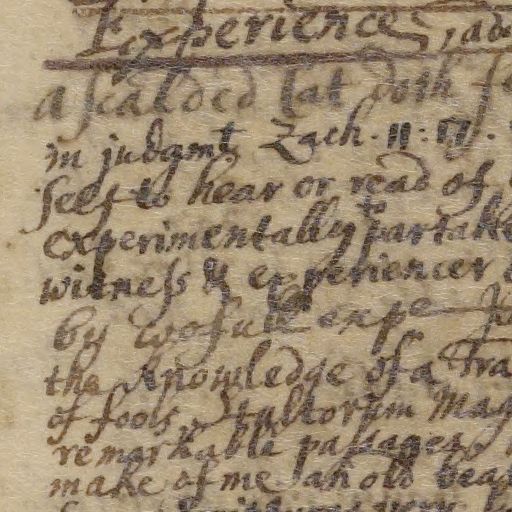 Experience, ad
a scalded Cat doth fe
in judgmt Zach. 11: 17.
self to hear or read of
experimentally to partake
witness & experiencer
by wofull expe
the knowledge of a Tra
of fools, Stultorum Mag
remarkable passages,
make of me an old bead
very